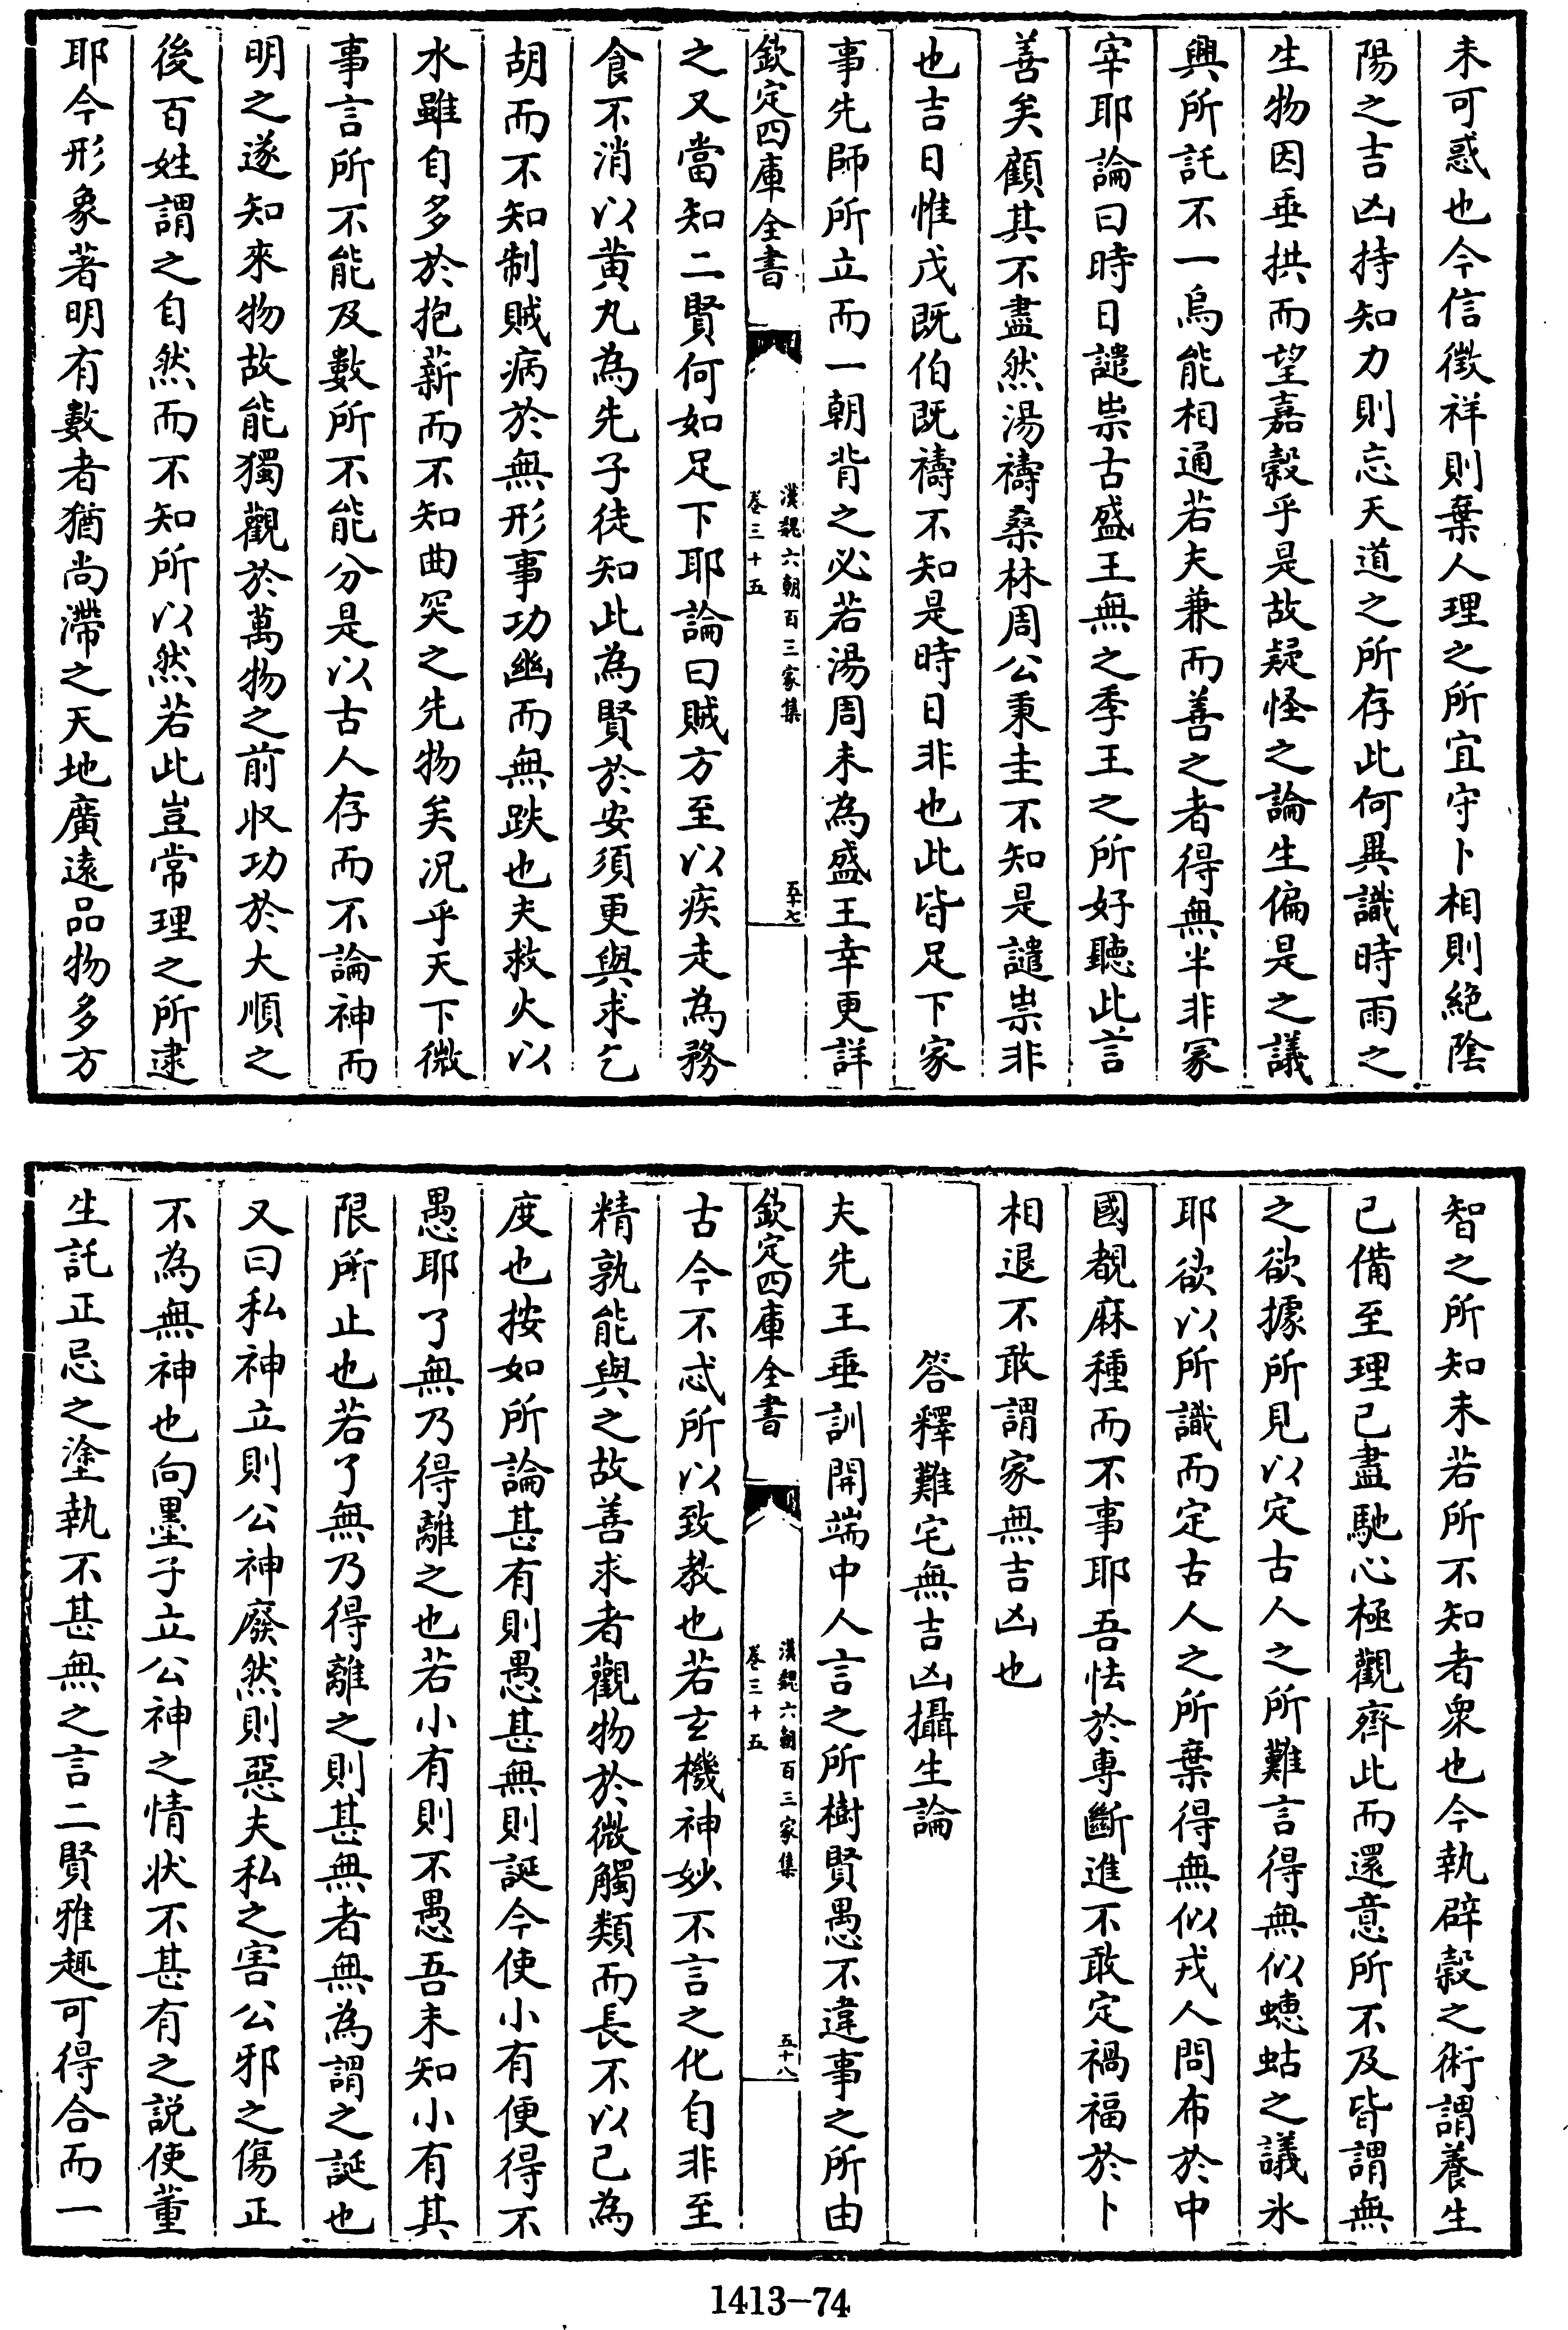 未可惑也今信徴祥則棄人理之所宜守卜相則絶陰
陽之吉凶持知力則忘天道之所存此何異識時雨之
生物因垂拱而望嘉穀乎是故疑怪之論生偏是之議
興所託不一烏能相通若夫兼而善之者得無半非冢
宰耶論曰時日譴祟古盛王無之季王之所好聽此言
善矣顧其不盡然湯禱桑林周公秉圭不知是譴祟非
也吉日惟戊既伯既禱不知是時日非也此皆足下家
事先師所立而一朝背之必若湯周未為盛王幸更詳
欽定四庫全書
漢魏六朝百三家集
卷三十五
五十七
之又當知二賢何如足下耶論曰賊方至以疾走為務
食不消以黄丸為先子徒知此為賢於安須更與求乞
胡而不知制賊病於無形事功幽而無跌也夫救火以
水雖自多於抱薪而不知曲突之先物矣况乎天下微
事言所不能及數所不能分是以古人存而不論神而
明之遂知來物故能獨觀於萬物之前收功於大順之
後百姓謂之自然而不知所以然若此豈常理之所逮
耶今形象著明有數者猶尚滯之天地廣逺品物多方
智之所知未若所不知者衆也今執辟穀之術謂養生
已備至理已盡馳心極觀齊此而還意所不及皆謂無
之欲據所見以定古人之所難言得無似蟪蛄之議氷
耶欲以所識而定古人之所棄得無似戎人問布於中
國覩麻種而不事耶吾怯於専斷進不敢定禍福於卜
相退不敢謂家無吉凶也
答釋難宅無吉凶攝生論
夫先王垂訓開端中人言之所樹賢愚不違事之所由
欽定四庫全書
漢魏六朝百三家集
卷三十五
五十八
古今不忒所以致教也若玄機神妙不言之化自非至
精孰能與之故善求者觀物於微觸類而長不以己為
度也按如所論甚有則愚甚無則誕今使小有便得不
愚耶了無乃得離之也若小有則不愚吾未知小有其
限所止也若了無乃得離之則甚無者無為謂之誕也
又曰私神立則公神廢然則惡夫私之害公邪之傷正
不為無神也向墨子立公神之情状不甚有之説使董
生託正忌之塗執不甚無之言二賢雅趣可得合而一
1413-74